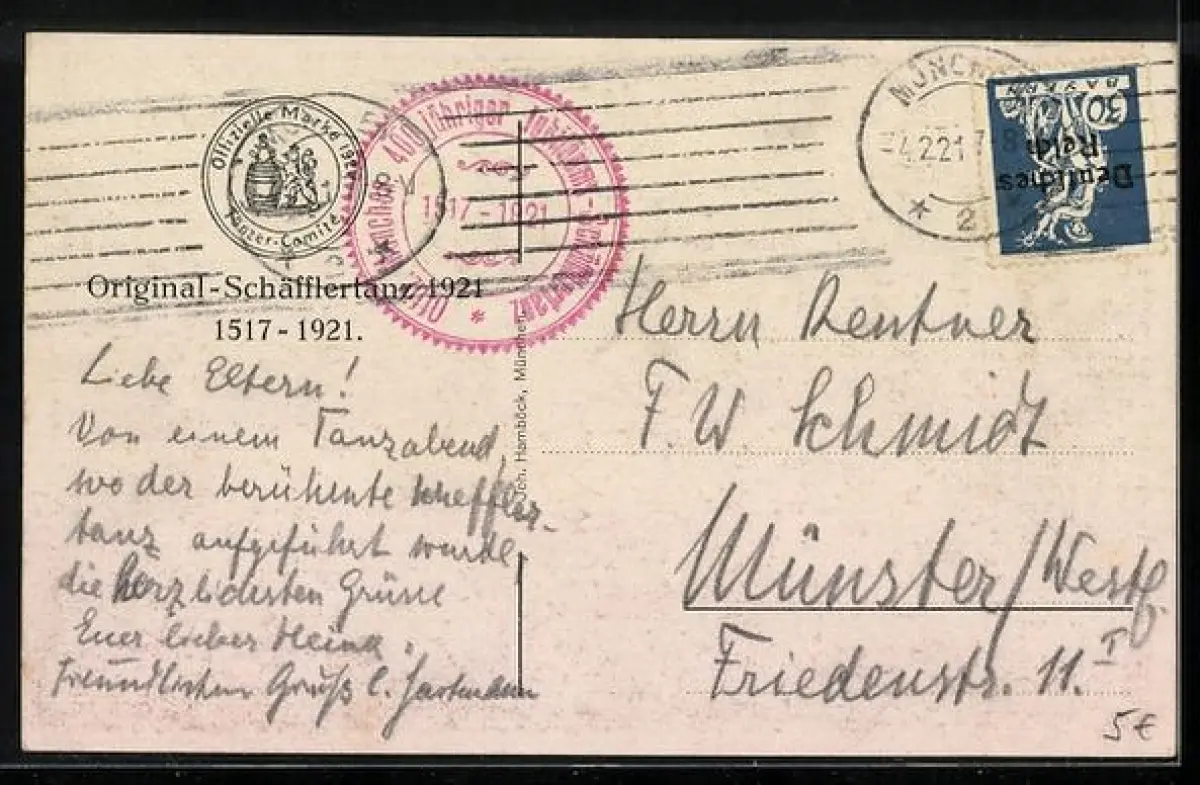 Offizielle Marke 1921
Tänzer-Comité
Original-Schäfflertanz 1921
1517-1921.
Offiz. Münchner 400 jähriger Jubiläums-Schäfflertanz
1517-1921
MÜNCH
4.2.21 7-8
* 2
BAYERN
30
Deutsches
Reich
Joh. Hamböck, München.
Liebe Eltern!
Von einem Tanzabend,
wo der berühmte Scheffler-
tanz aufgeführt wurde
die herzlichsten Grüsse
Euer lieber
freundlichen Gruß
Herrn Rentner
F. W Schmidt
Münster/Westf.
Friedenstr. 11. I
5€